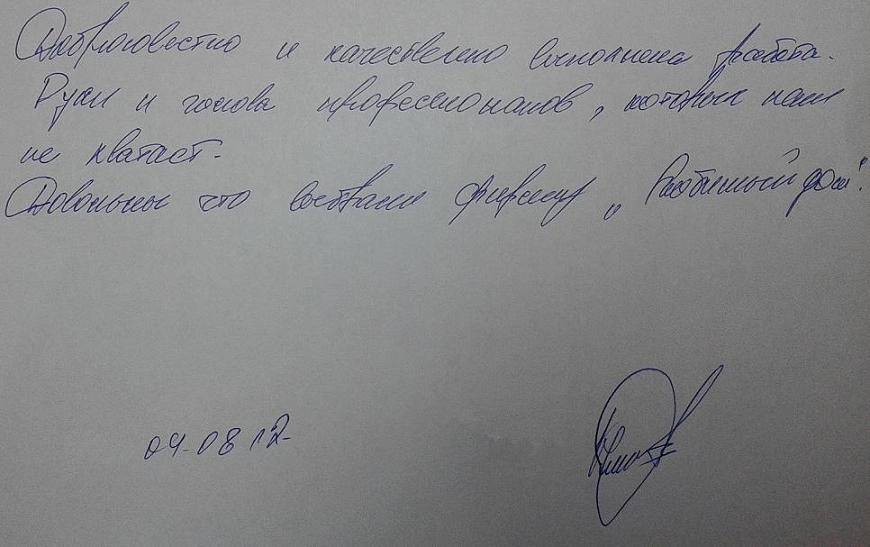 Добросовестно и качественно выполнена работа.
Руки и голова профессионалов, которых нам
не хватает.
Довольны что выбрали фирму „Любимый дом".
04.08.12